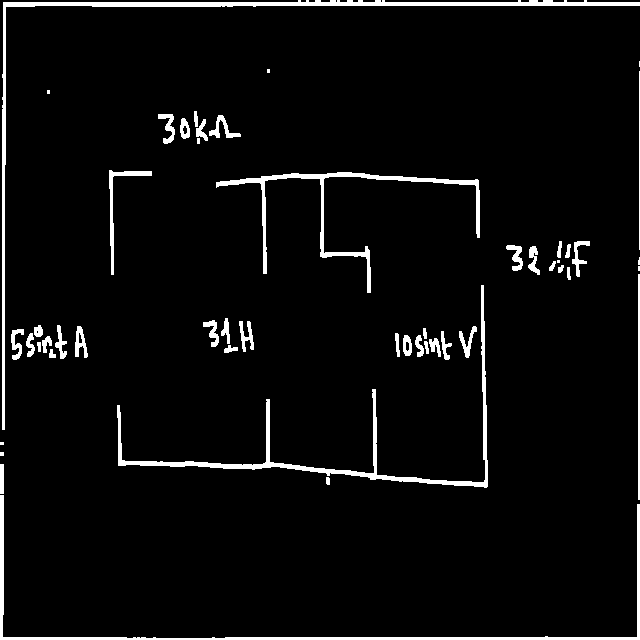 30kΩ
32 µF
5sint A
31H
10sint V